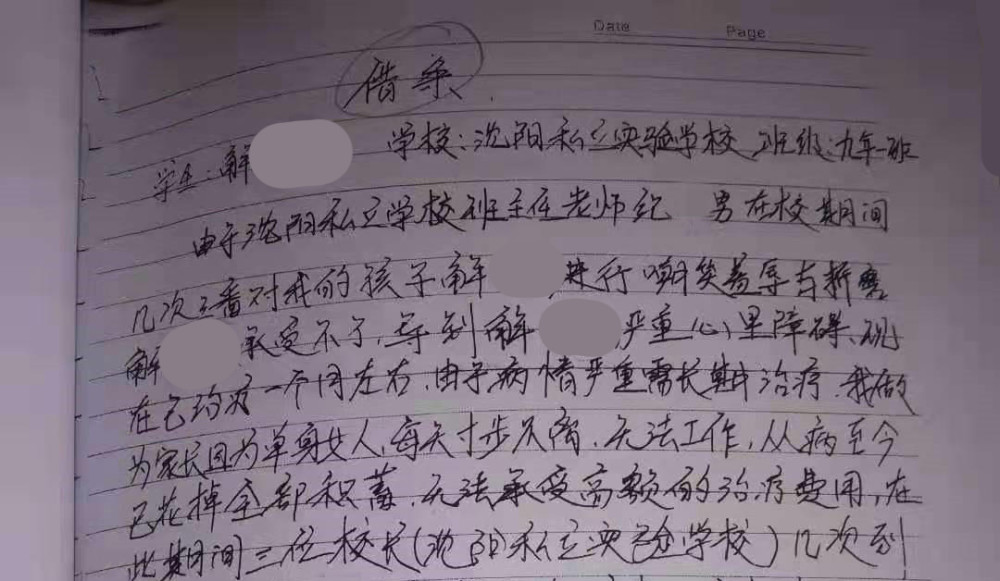 Date Page
借条
学生:解 学校:沈阳私立实验学校 班级:九年一班
由于沈阳私立学校班主任老师纪 男在校期间
几次三番对我的孩子解 进行嘲笑羞辱与折磨
解 承受不了,导到解 严重心里障碍、现
在已治疗一个月左右,由于病情严重需长期治疗,我做
为家长因为单身女人,每天寸步不离,无法工作,从病至今
已花掉全部积蓄,无法承受高额的治疗费用,在
此期间三位校长(沈阳私立实验学校)几次到